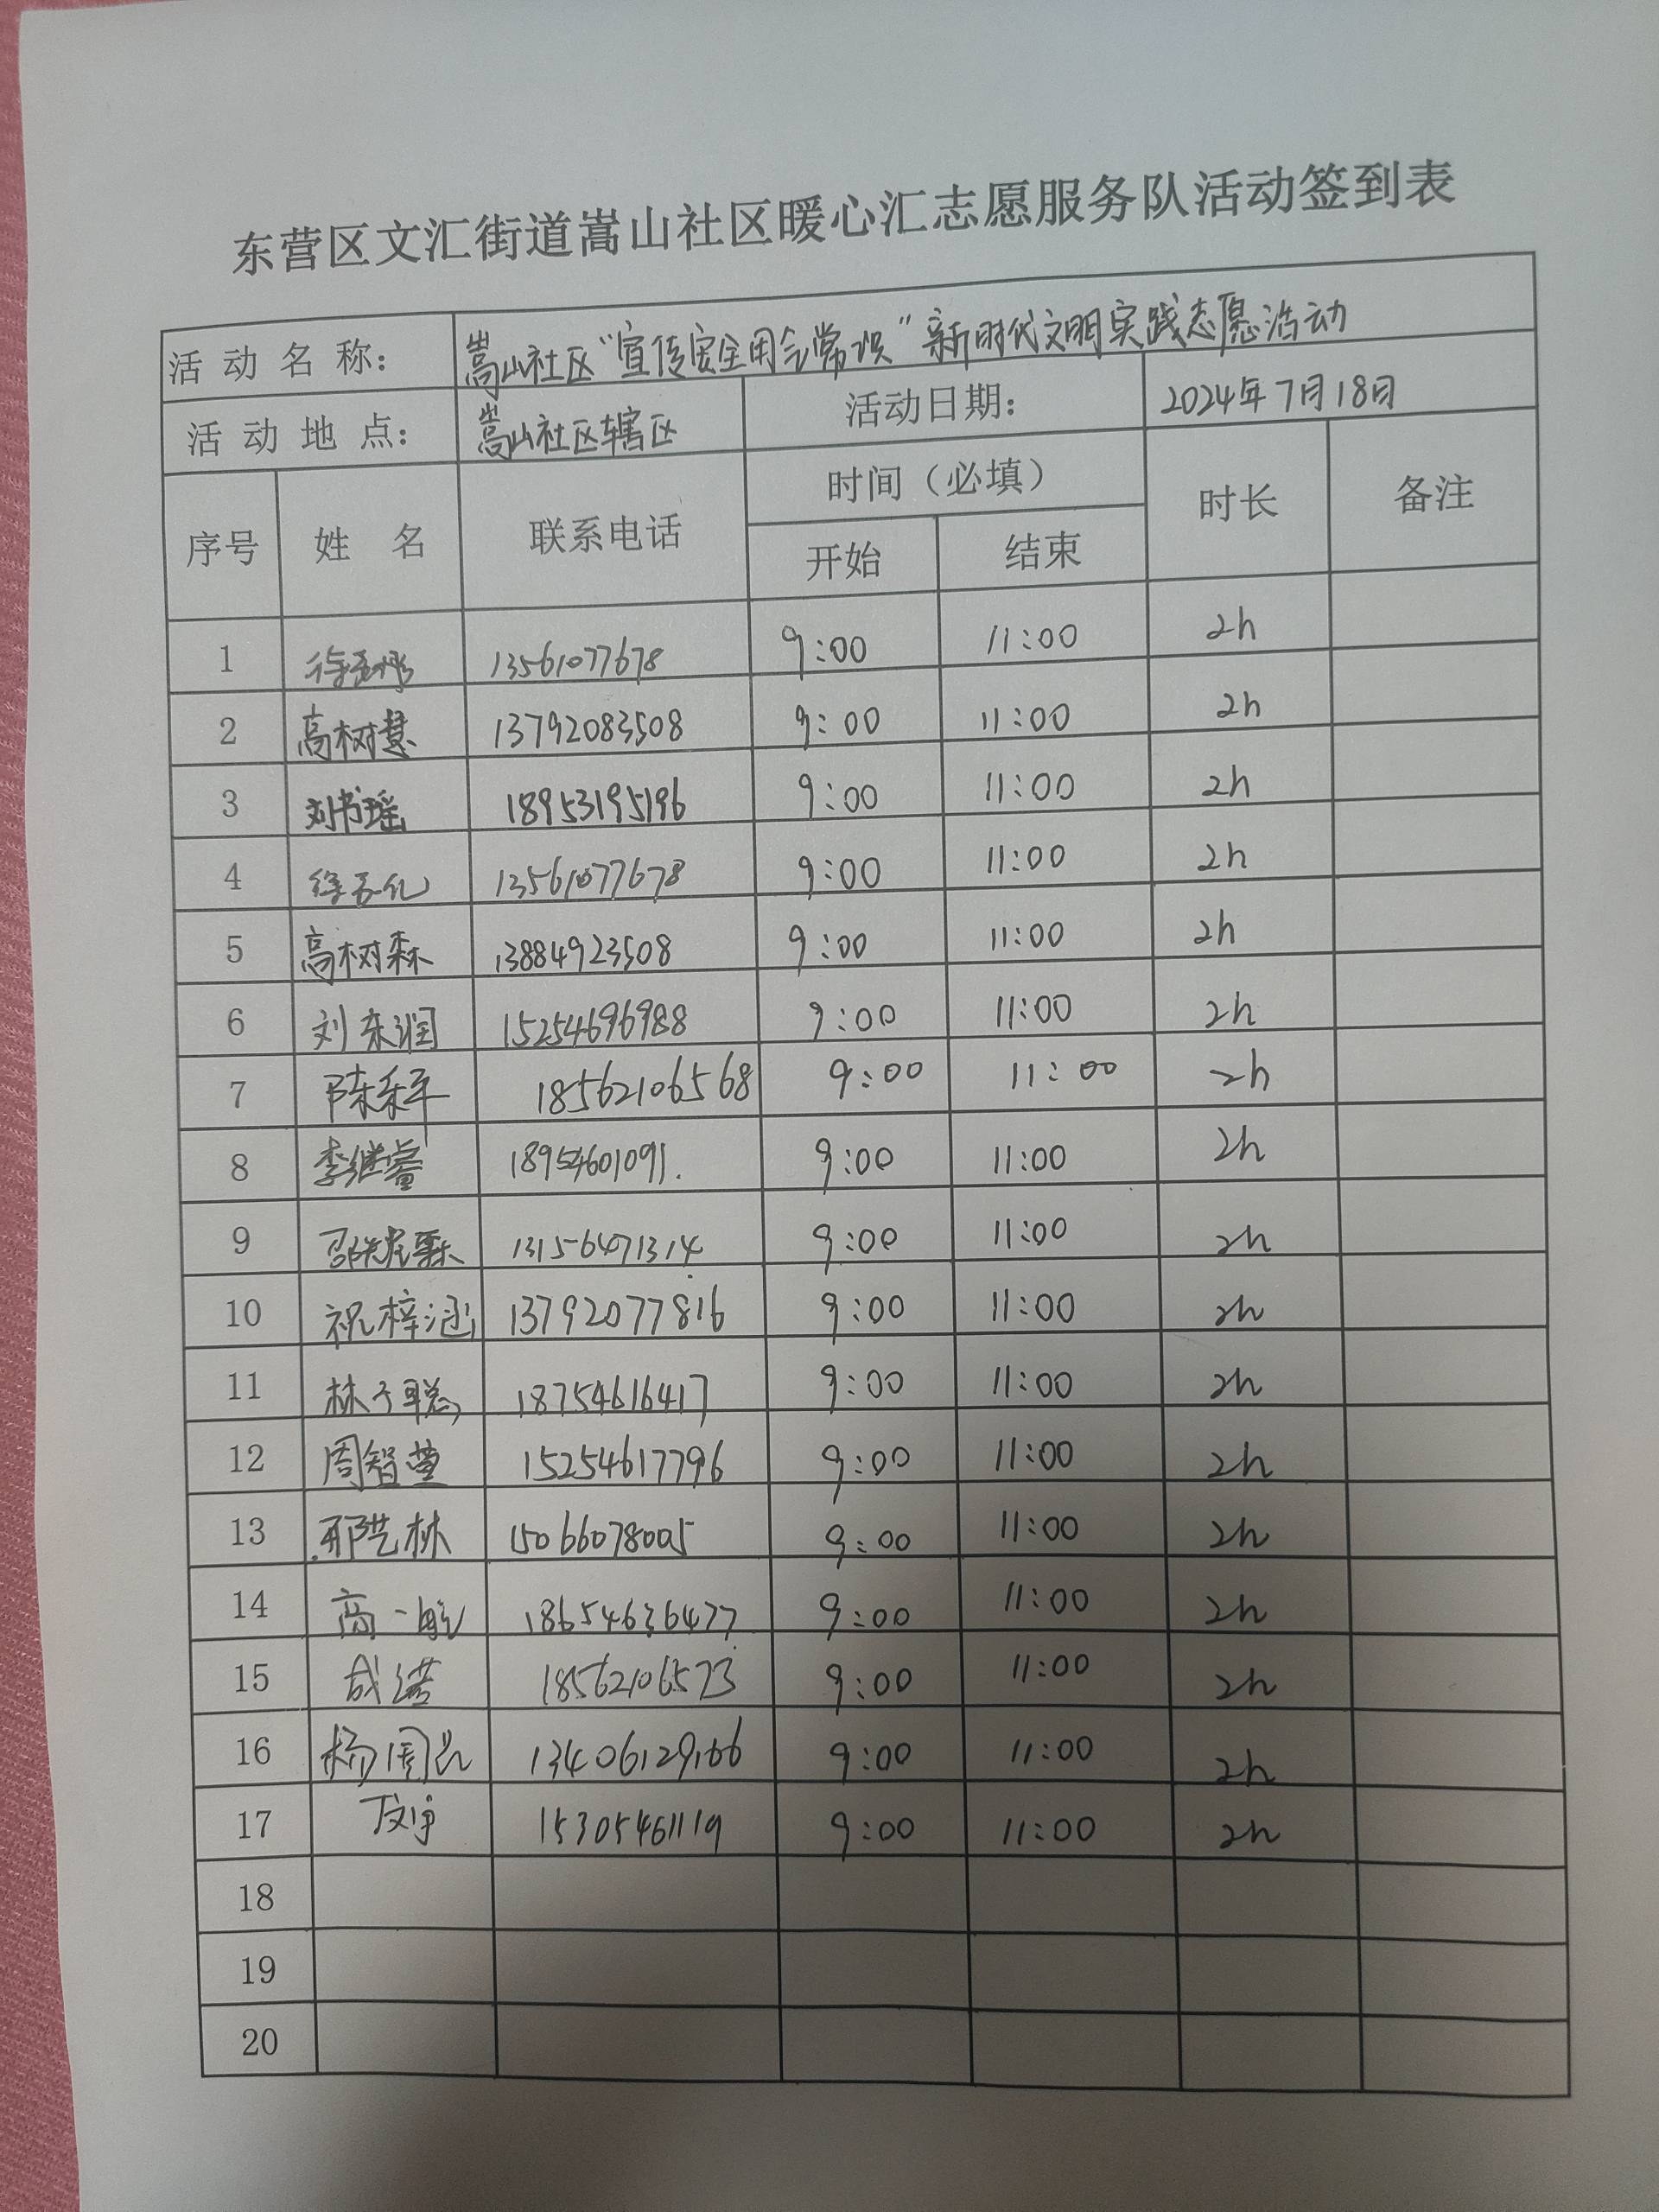 东营区文汇街道嵩山社区暖心汇志愿服务队活动签到表
活动名称： 嵩山社区“宣传安全用会常识”新时代文明实践志愿活动
活动地点： 嵩山社区辖区 活动日期： 2024年7月18日
序号 姓 名 联系电话 时间（必填） 时长 备注
开始 结束
1 13561077678 9:00 11:00 2h
2 高树慧 13792083508 9:00 11:00 2h
3 刘书瑶 18953195196 9:00 11:00 2h
4 13561077678 9:00 11:00 2h
5 高树森 13884923508 9:00 11:00 2h
6 刘东润 15254696988 9:00 11:00 2h
7 18562106568 9:00 11:00 2h
8 李继睿 18954601091. 9:00 11:00 2h
9 13156471314 9:00 11:00 2h
10 祝梓涵 13792077816 9:00 11:00 2h
11 林子聪 18754616417 9:00 11:00 2h
12 周智萱 15254617796 9:00 11:00 2h
13 邢艺林 15066078005 9:00 11:00 2h
14 高一航 18654636477 9:00 11:00 2h
15 成诺 18562106573 9:00 11:00 2h
16 13406129166 9:00 11:00 2h
17 15305461119 9:00 11:00 2h
18
19
20